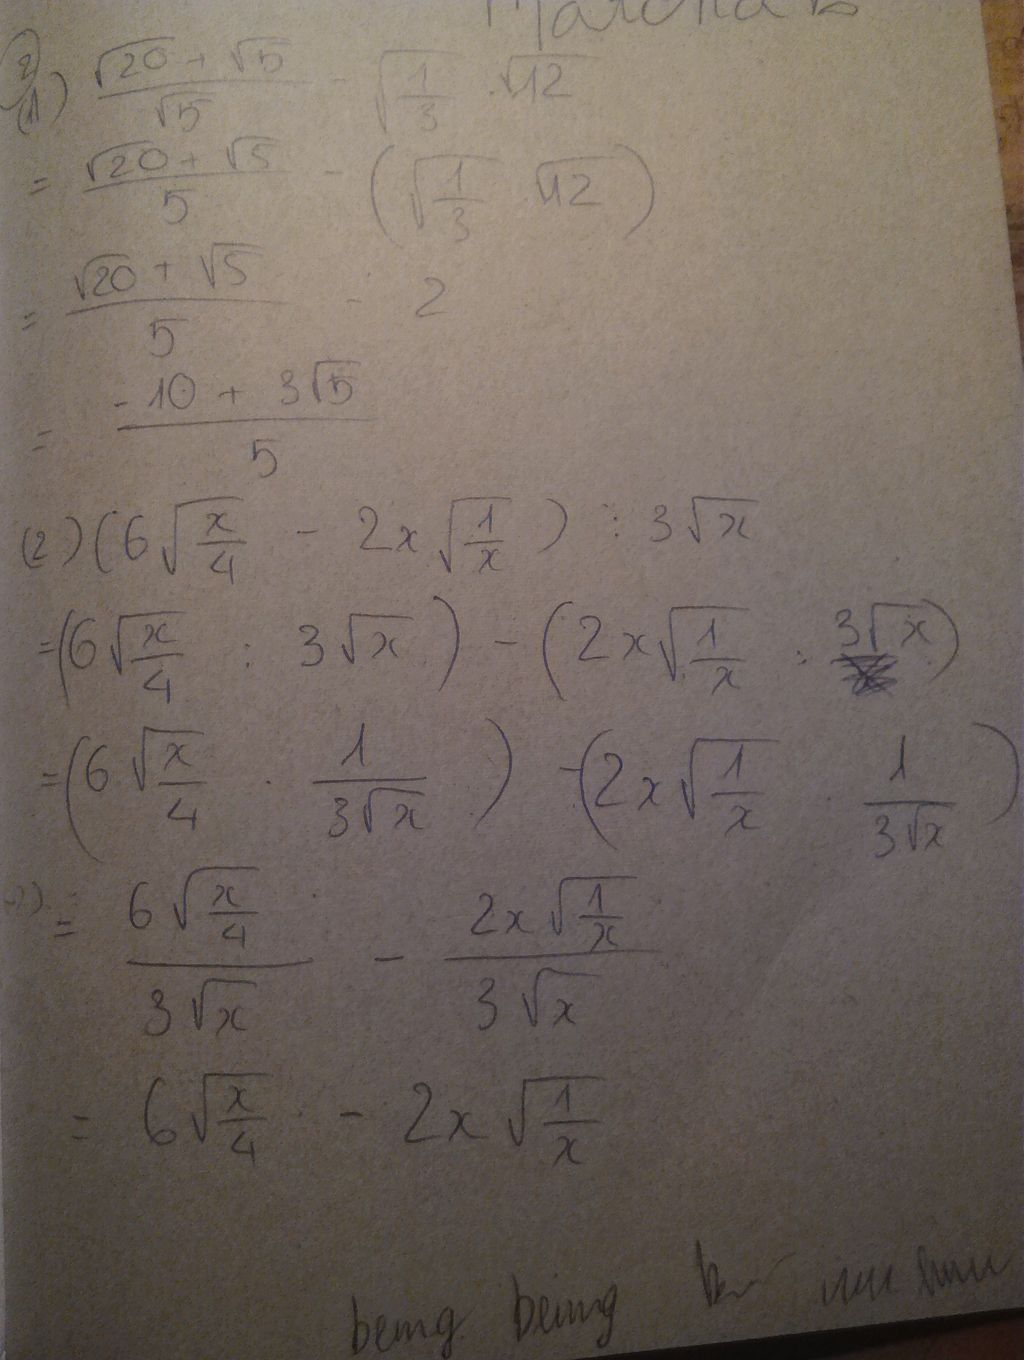 2)
(1) (√20 + √5)/√5 - √(1/3) · √12
= (√20 + √5)/5 - (√(1/3) · √12)
= (√20 + √5)/5 - 2
= (-10 + 3√5)/5
(2) (6√(x/4) - 2x√(1/x)) : 3√x
= (6√(x/4) : 3√x) - (2x√(1/x) : 3√x)
= (6√(x/4) · 1/(3√x)) - (2x√(1/x) · 1/(3√x))
= (6√(x/4))/(3√x) - (2x√(1/x))/(3√x)
= 6√(x/4) - 2x√(1/x)
being being